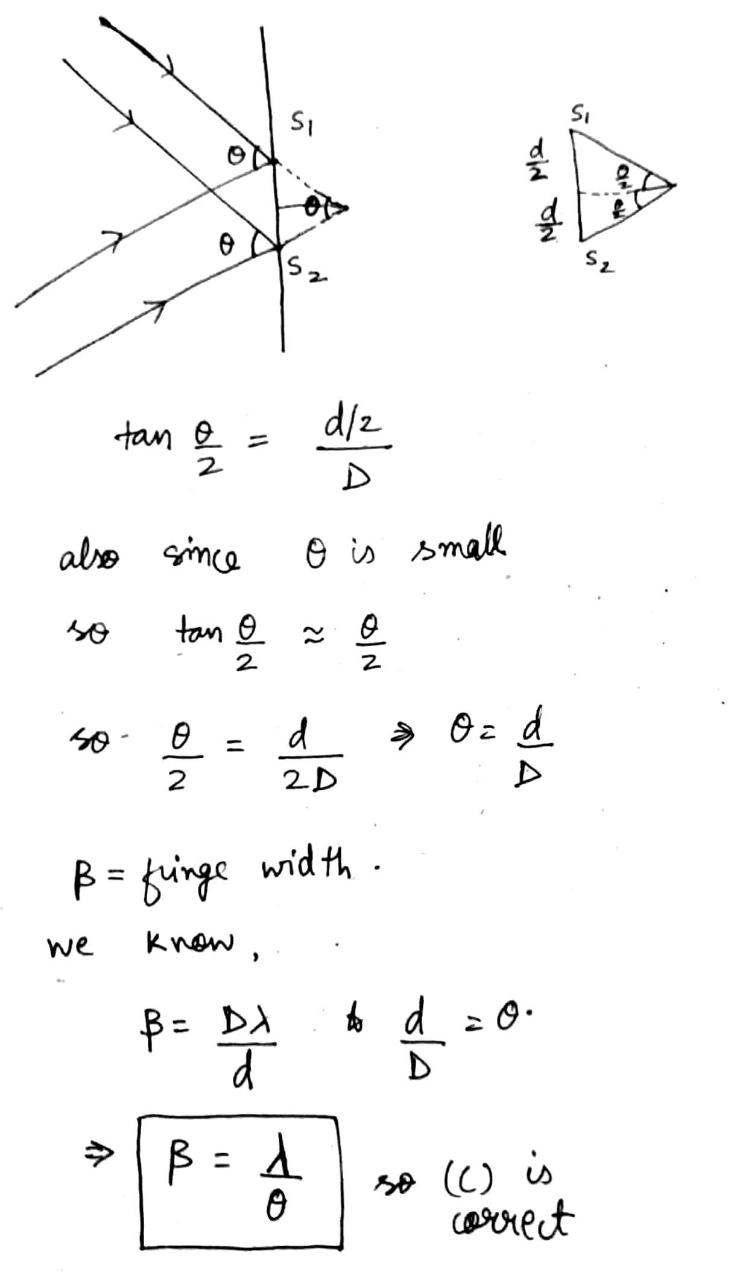 S₁
θ
θ
θ
S₂
S₁
d/2
θ/2
d/2
θ/2
S₂
tan θ/2 = d/2 / D
also since θ is small
so tan θ/2 ≈ θ/2
so θ/2 = d/2D ⇒ θ = d/D
β = fringe width.
we know,
β = Dλ/d & d/D = θ.
⇒ β = λ/θ so (C) is
correct